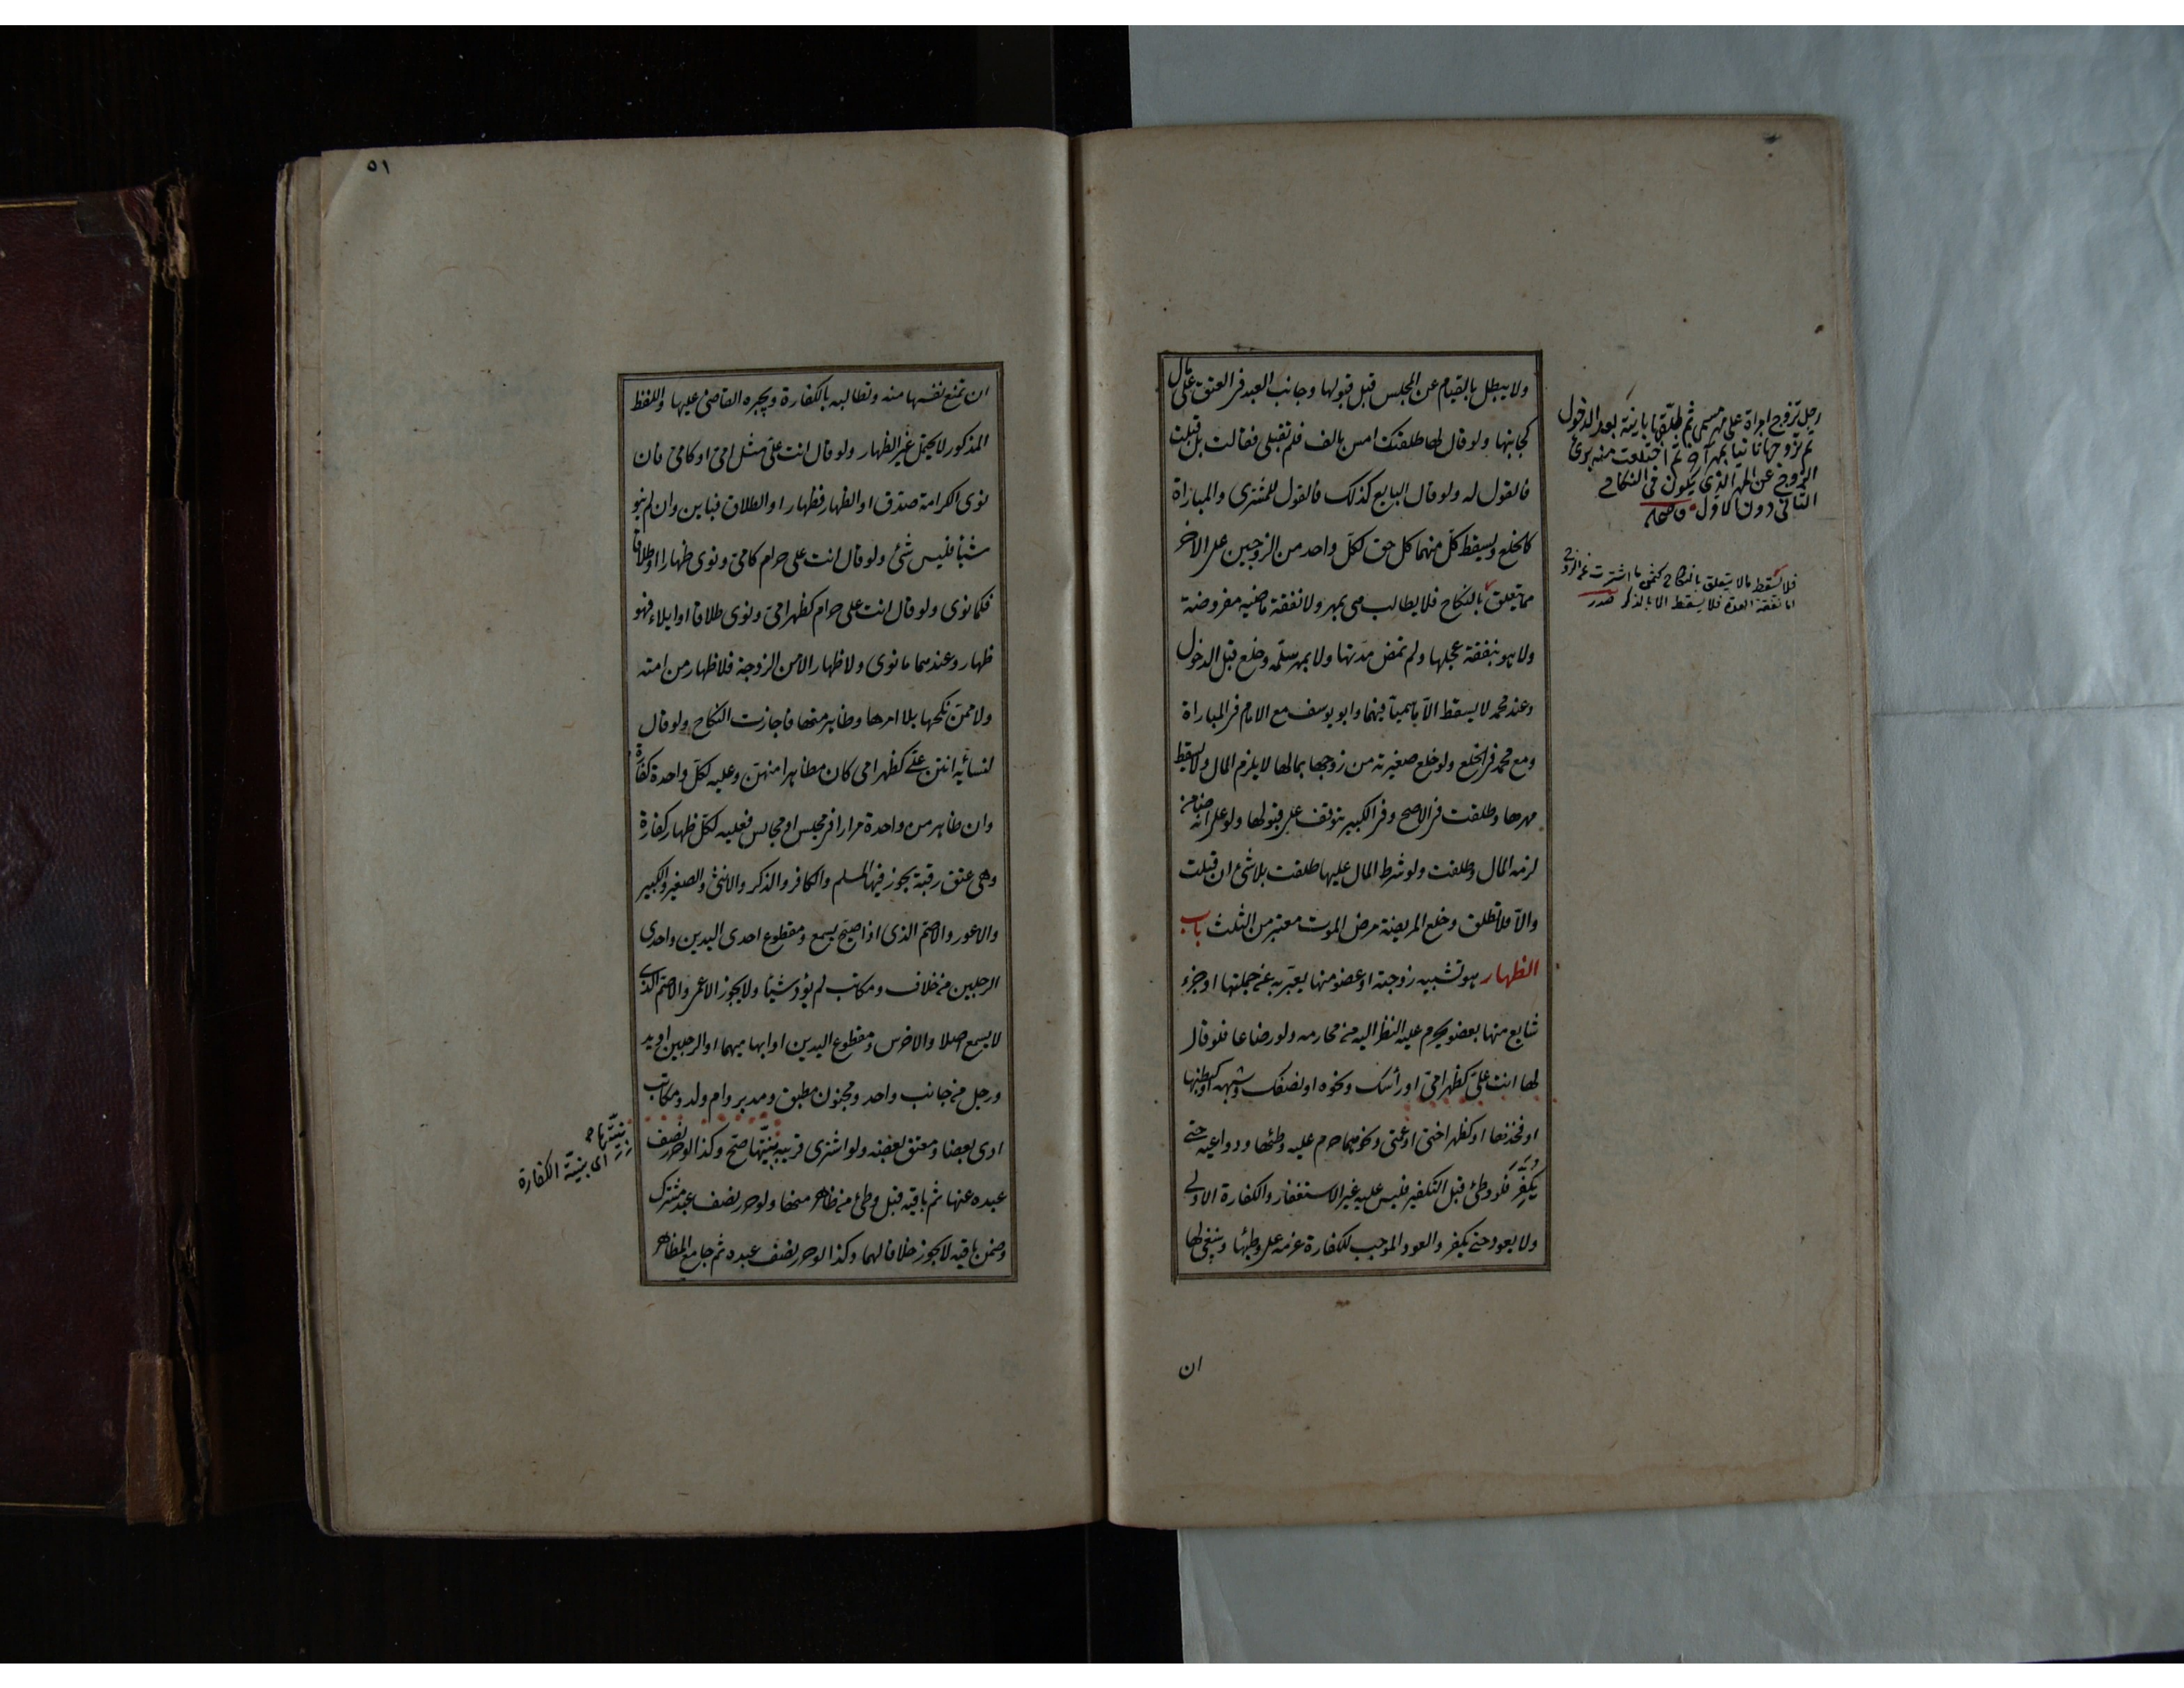 ولا يبطل بالقيام عن المجلس قبل قبولها وجانب العبد فى العتق على مال
كجانبها ولو قال لها طلقتك امس بالف فلم تقبلى فقالت بل قبلت
فالقول له ولو قال البايع كذلك فالقول للمشترى والمباراة
كالخلع ويسقط كل منهما كل حق لكل واحد من الزوجين على الاخر
مما يتعلق بالنكاح فلا يطالب هى بمهر ولا نفقة ماضيه مفروضة
ولا هو بنفقة عجلها ولم تمض مدتها ولا بمهر سلمه وخلع قبل الدخول
وعند محمد لا يسقط الا ما سميا فيهما وابو يوسف مع الامام فى المباراة
ومع محمد فى الخلع ولو خلع صغيرته من زوجها بمالها لا يلزم المال ولا يسقط
مهرها وطلقت فى الاصح وفى الكبير يتوقف على قبولها ولو على انه ضامن
لزمه المال وطلقت ولو شرط المال عليها طلقت بلا شئ ان قبلت
والا فلا تطلق وخلع المريضة مرض الموت معتبر من الثلث باب
الظهار هو تشبيه زوجته او عضو منها يعبر به عن جملتها او جزء
شايع منها بعضو يحرم عليه النظر اليه من محارمه ولو رضاعا فلو قال
لها انت على كظهر امى او رأسك ونحوه او نصفك وشبهه او كبطنها
او فخذها او كظهر اختى او عمتى ونحوهما حرم عليه وطئها ودواعيه حتى
يكفر فلو وطئ قبل التكفير فليس عليه غير الاستغفار والكفارة الاولى
ولا يعود حتى يكفر والعود الموجب للكفارة عزمه على وطئها وينبغى لها
ان
رجل تزوج امراة على مهر مسمى ثم طلقها باينة بعد الدخول
ثم تزوجها ثانيا بمهر آخر ثم اختلعت منه برئ
الزوج عن المهر الذى يكون فى النكاح
الثانى دون الاول
فلا يسقط مالا يتعلق بالنكاح كثمن ما اشترت من الزوج
اما نفقة العدة فلا يسقط الا بالذكر صدر
٥١
ان تمنع نفسها منه وتطالبه بالكفارة ويجبره القاضى عليها واللفظ
المذكور لا يحتمل غير الظهار ولو قال انت على مثل امى او كامى فان
نوى الكرامة صدق او الظهار فظهار او الطلاق فباين وان لم ينو
شيئا فليس شئ ولو قال انت على حرام كامى ونوى ظهارا او طلاقا
فكما نوى ولو قال انت على حرام كظهر امى ونوى طلاقا او ايلاء فهو
ظهار وعندهما ما نوى ولا ظهار الا من الزوجة فلا ظهار من امته
ولا ممن نكحها بلا امرها وظاهر منها فاجازت النكاح ولو قال
لنسائه انتن على كظهر امى كان مظاهرا منهن وعليه لكل واحدة كفارة
وان ظاهر من واحدة مرارا فى مجلس او مجالس فعليه لكل ظهار كفارة
وهى عتق رقبة يجوز فيها المسلم والكافر والذكر والانثى والصغير والكبير
والاعور والاصم الذى اذا صيح يسمع ومقطوع احدى اليدين واحدى
الرجلين من خلاف ومكاتب لم يؤد شيئا ولا يجوز الاعمى والاصم الذى
لا يسمع اصلا والاخرس ومقطوع اليدين او ابهاميهما او الرجلين او يد
ورجل من جانب واحد ومجنون مطبق ومدبر وام ولد ومكاتب
ادى بعضا ومعتق بعضه ولو اشترى قريبه بنيتها صح وكذا لو حرر نصف
عبده عنها ثم باقيه قبل وطئ من ظاهر منها ولو حرر نصف عبد مشترك
وضمن باقيه لا يجوز خلافا لهما وكذا لو حرر نصف عبده ثم جامع المظاهر
اى بنية الكفارة